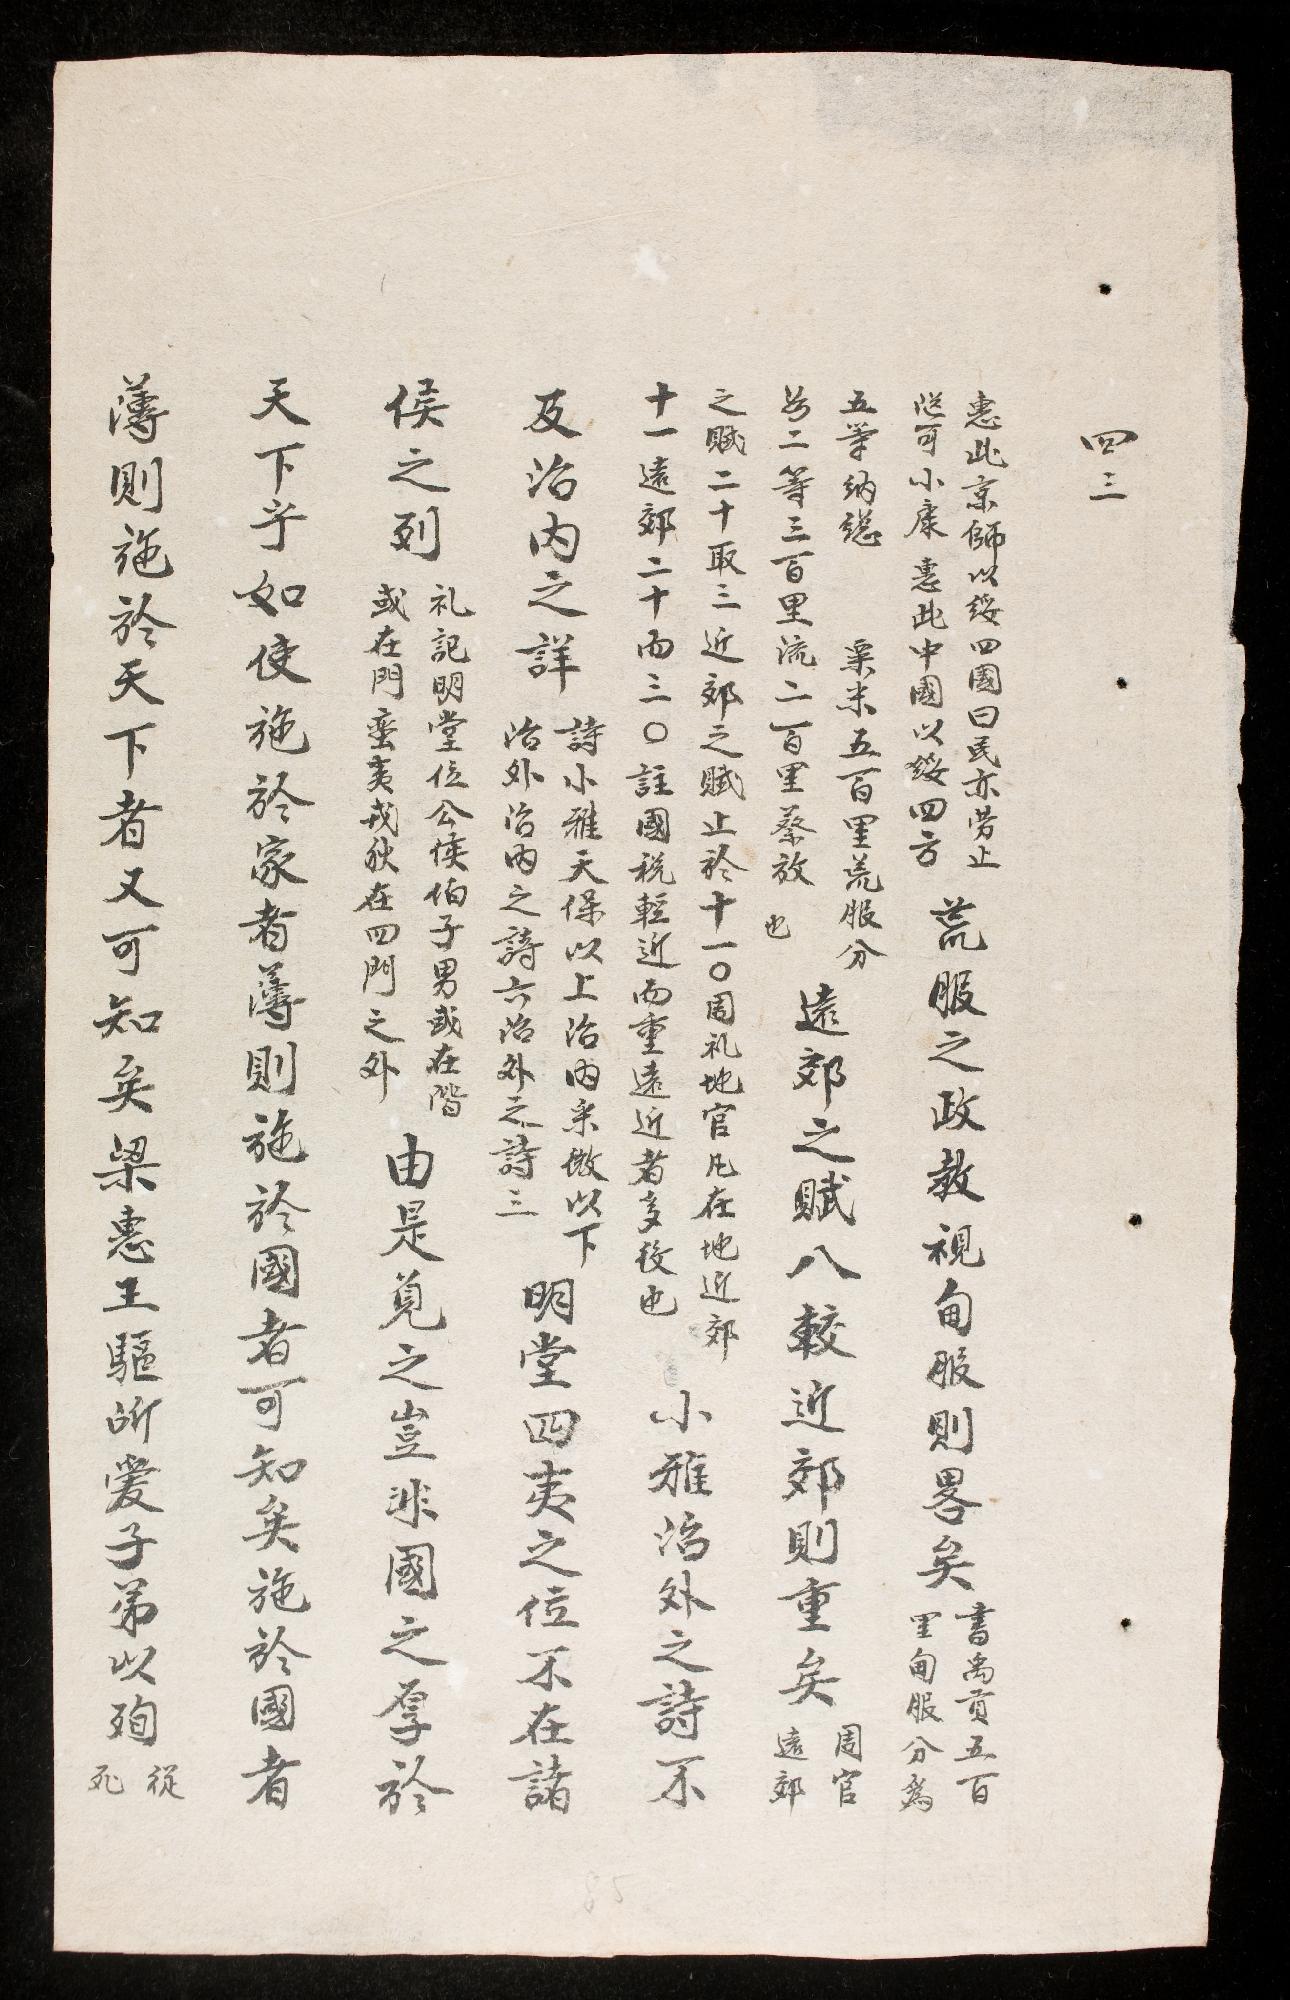 四三
惠此京師以綏四國曰民亦劳止
迄可小康惠此中國以綏四方
荒服之政教視甸服則畧矣
書禹貢五百
里甸服分為
五等納緫 粟米五百里荒服分
為二等三百里流二百里蔡放也
遠郊之賦八較近郊則重矣
周官
遠郊
之賦二十取三近郊之賦止於十一〇周礼地官凡在地近郊
十一遠郊二十而三〇註國税輕近而重遠近者多役也
小雅治外之詩不
及治内之詳
詩小雅天保以上治内采薇以下
治外治内之詩六治外之詩三
明堂四夷之位不在諸
侯之列
礼記明堂位公侯伯子男或在階
或在門蛮夷戎狄在四門之外
由是覓之豈非國之厚於
天下乎如使施於家者薄則施於國者可知矣施於國者
薄則施於天下者又可知矣梁惠王驅所愛子弟以殉
從
死